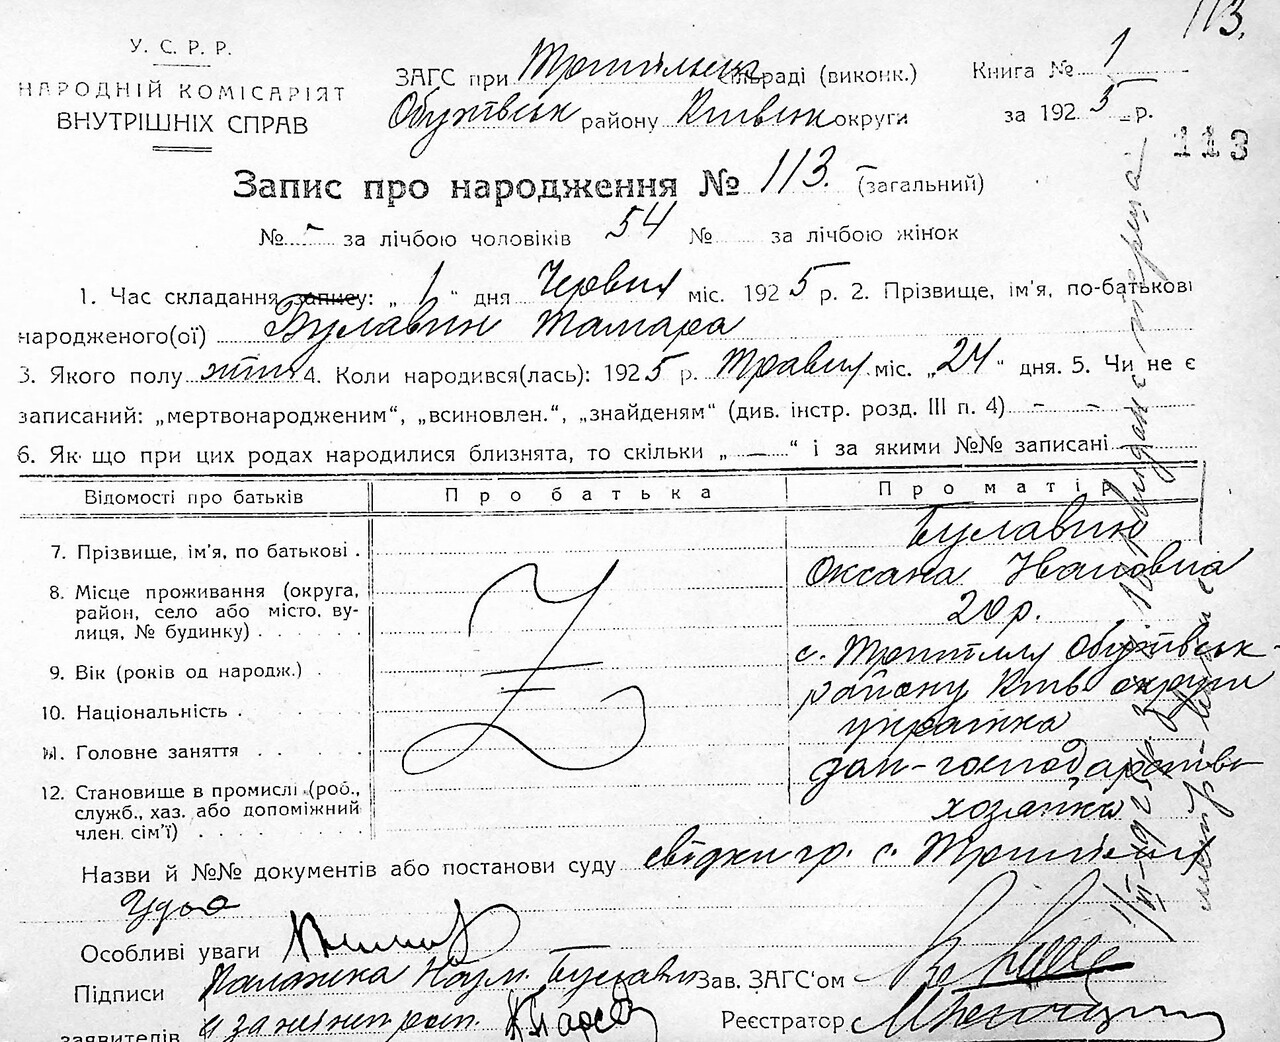 113.
У. С. Р. Р.
НАРОДНІЙ КОМІСАРІЯТ
ВНУТРІШНІХ СПРАВ
ЗАГС при Трипільськ сільраді (виконк.)
Обухівськ району Київськ округи
Книга № 1
за 1925 р.
113
Запис про народження № 113. (загальний)
№ - за лічбою чоловіків 54 № за лічбою жінок
1. Час складання запису: „ 1 " дня Червня міс. 1925 р. 2. Прізвище, ім'я, по-батькові
народженого(ої) Булавин Тамара
3. Якого полу жін 4. Коли народився(лась): 1925 р. Травня міс. „24" дня. 5. Чи не є
записаний: „мертвонародженим", „всиновлен.", „знайденям" (див. інстр. розд. III п. 4) - -
6. Як що при цих родах народилися близнята, то скільки „ — " і за якими №№ записані
Відомості про батьків
Про батька
Про матір
7. Прізвище, ім'я, по батькові .
8. Місце проживання (округа,
район, село або місто, ву-
лиця, № будинку) . . . . . .
9. Вік (років од народж.) .
10. Національність . . . .
11. Головне заняття . . . .
12. Становище в промислі (роб.,
служб., хаз. або допоміжний
член. сім'ї) . . . . . . . .
Z
Булавин
Оксана Івановна
20 р.
с. Трипілля Обухівськ-
району Київ округи
українка
дом-господарстве
хозяйка
Назви й №№ документів або постанови суду свідки гр. с. Трипілля
Особливі уваги
Підписи
заявителів
Палажка Наум. Булавин
Зав. ЗАГС'ом
Реєстратор